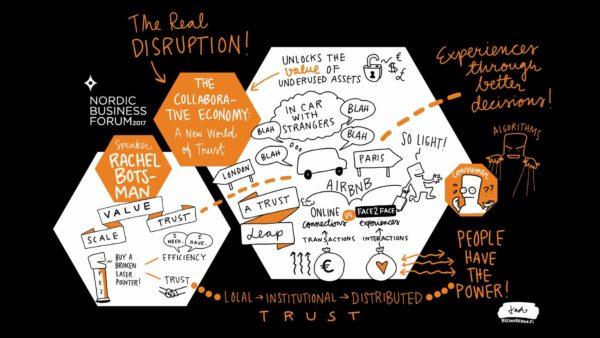 The Real
DISRUPTION!
NORDIC
BUSINESS
FORUM2017
THE
COLLABORA-
TIVE ECONOMY:
A New World
of Trust
UNLOCKS THE
value OF
UNDERUSED ASSETS
€
$
£
Experiences
through
better
decisions!
Speaker
RACHEL
BOTS-
MAN
VALUE
SCALE
TRUST
I NEED...
I HAVE...
EFFICIENCY
BUY A
BROKEN
LASER
POINTER!
TRUST
IN CAR
WITH
STRANGERS
BLAH
BLAH
BLAH
BLAH
LONDON
PARIS
SO LIGHT!
AIRBNB
A TRUST
Leap
ONLINE VS FACE2FACE
connections experiences
TRANSACTIONS INTERACTIONS
€
ALGORITHMS
CONSUMER
??
PEOPLE
HAVE
THE
POWER!
LOCAL → INSTITUTIONAL → DISTRIBUTED
TRUST